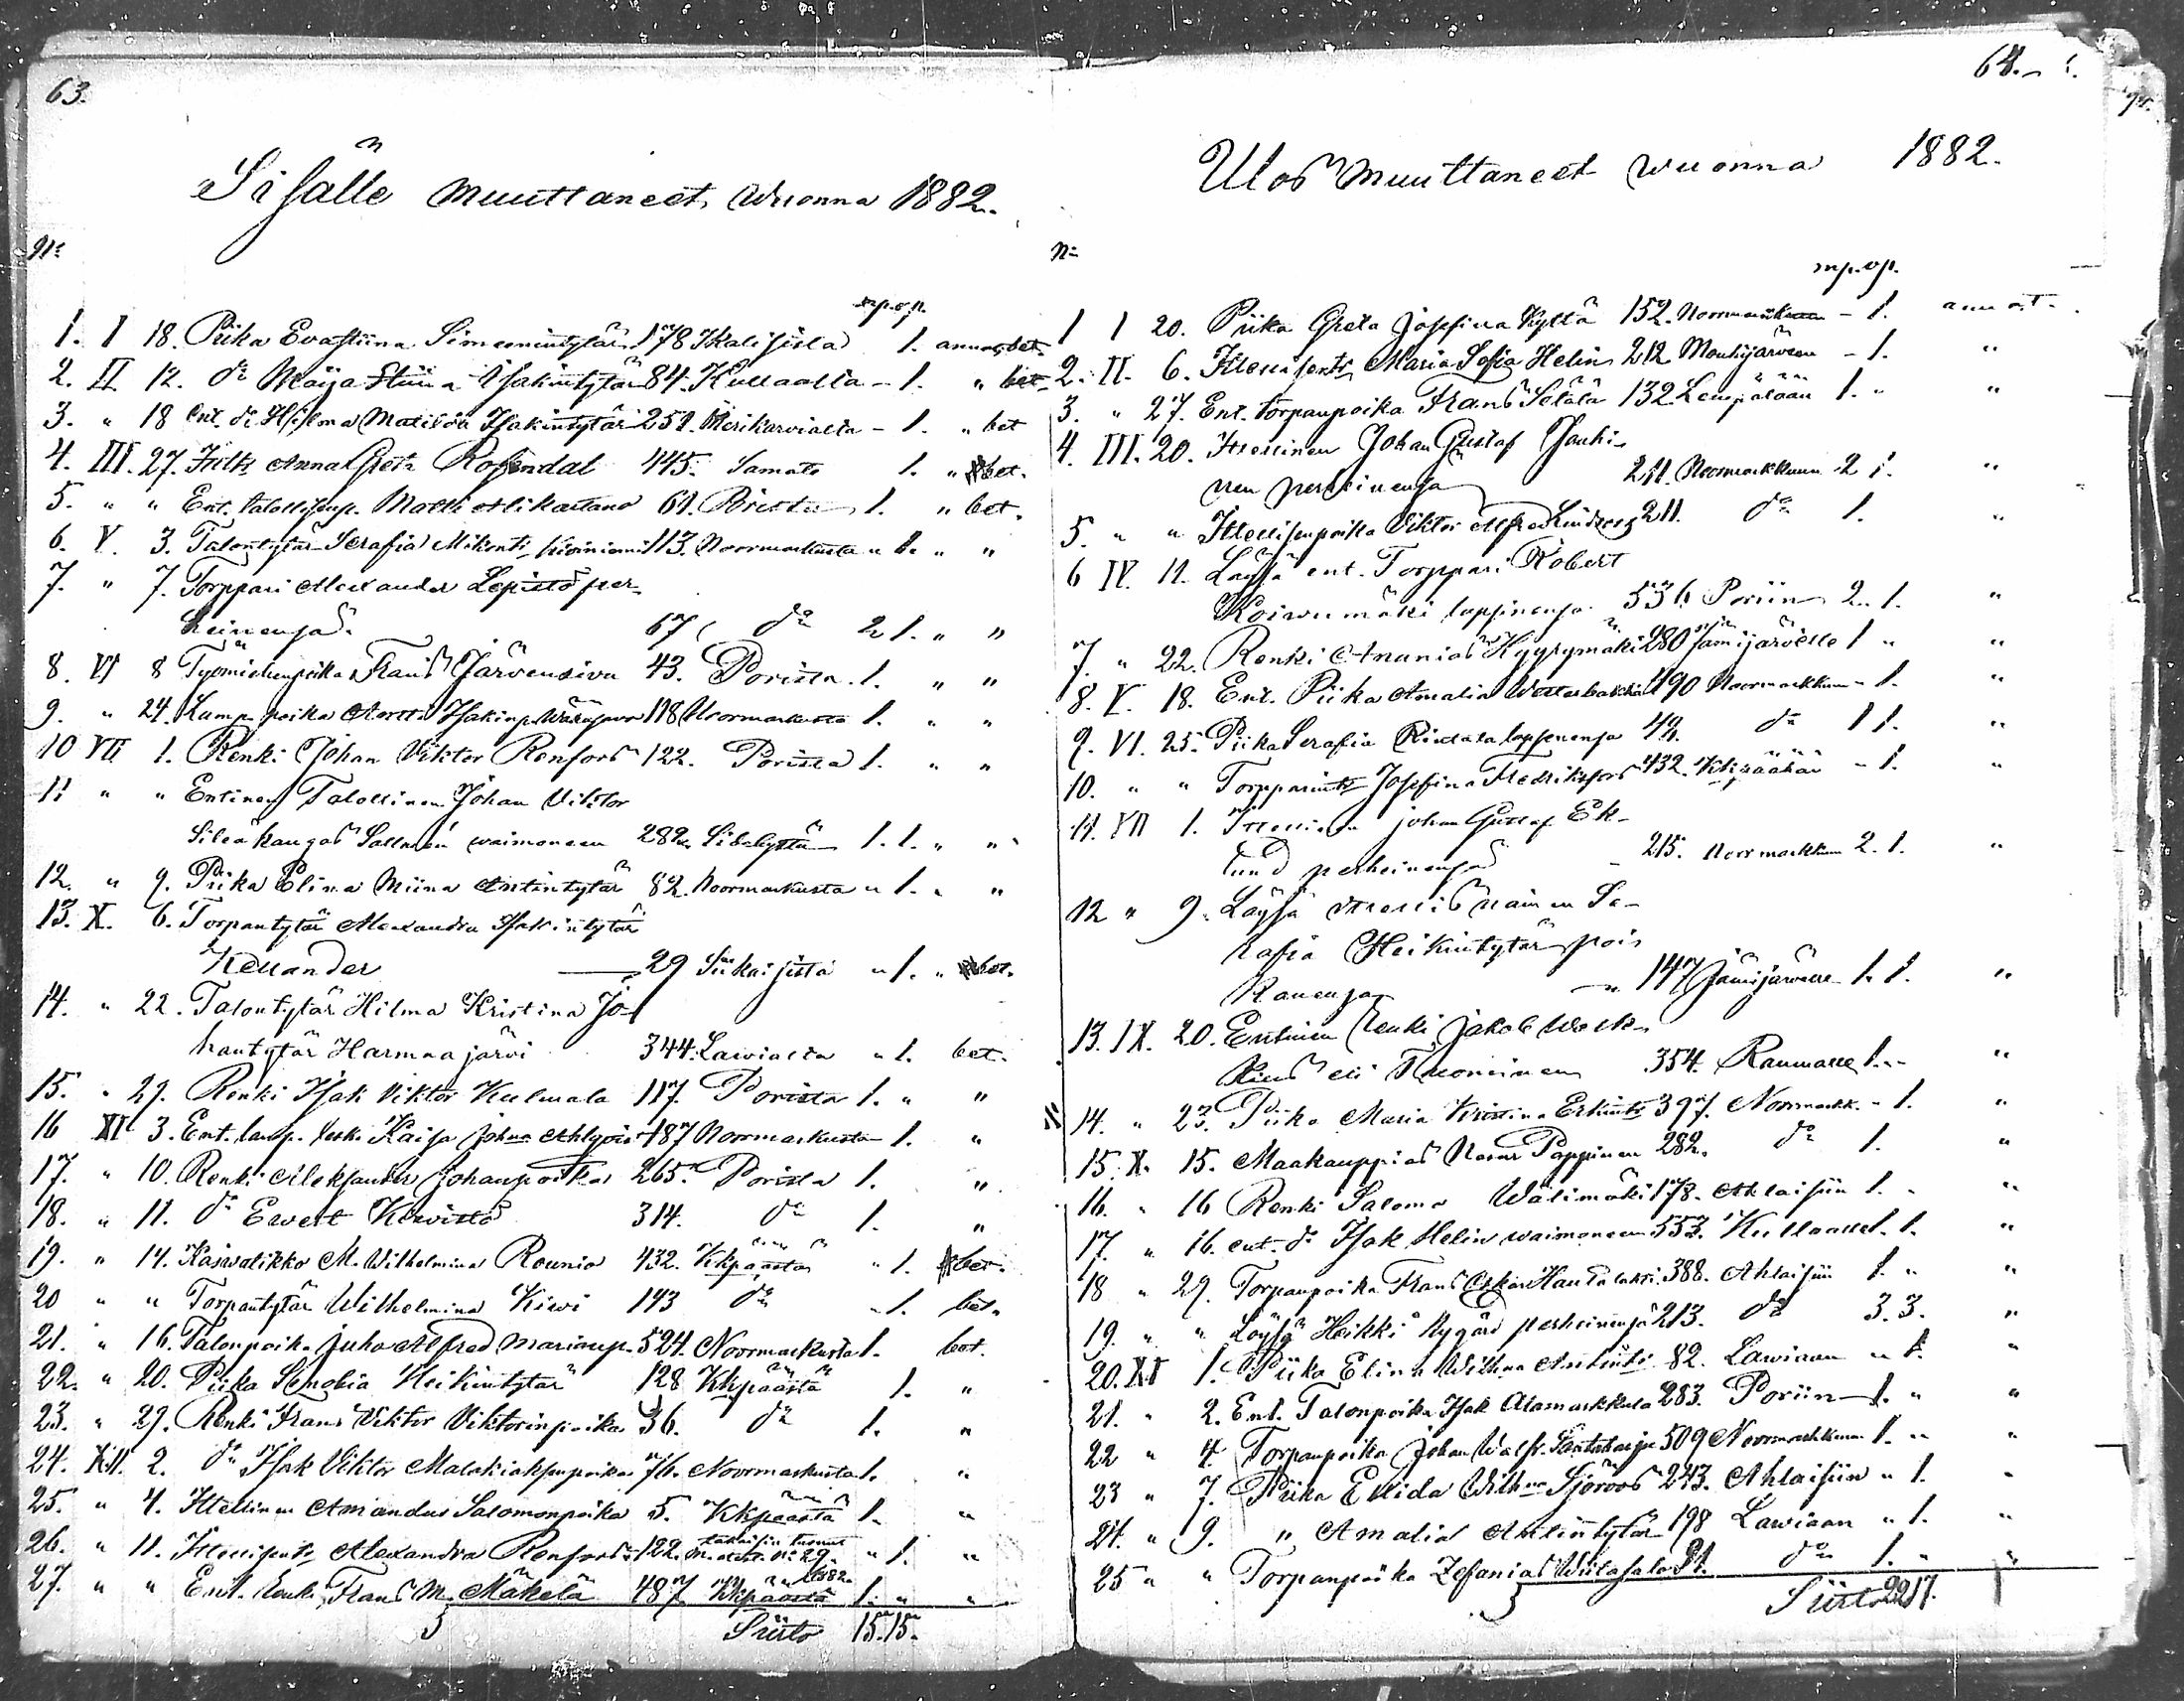 63.
Sisälle muuttaneet wuonna 1882.
No
mp. vp.
1. I 18. Piika Eva Stiina Simeonintytär 178 Ikalisista 1. annet. bet.
2. II 12. do Maija Stiina Isakintytär 84. Kullaalta - 1. " bet.
3. " 18 Ent. do Hilma Matilda Isakintytär 251. Merikarvialta - 1. " bet
4. III. 27. Anna Greta Rosendal 445. Samate 1. " bet.
5. " " Ent. talollisenp. Matti Alikartano 61. Porista 1. " bet.
6. V. 3. Talontytär Serafia Mikont. Kiviniemi 113. Noormarkusta " 1. " "
7. " 7. Torppari Alexander Lepistö per-
heinensä. 67. do 2 1. " "
8. VI 8 Työmiehenpoika Frans Järvensivu 43. Porista. 1. " "
9. " 24. Lamp. poika Isakinp. 118 Noormarkusta 1. " "
10 VII 1. Renki Johan Viktor Renfors 122. Porista 1. " "
11 " " Entinen Talollinen Johan Viktor
Sileäkangas Sallmén waimoneen 282. 1. 1. " "
12. " 9. Piika Elina Miina Antintytär 82. Noormarkusta " 1. " "
13. X. 6. Torpantytär Alexandra Isakintytär
Kellander 29 Siikaisista " 1. " bet.
14. " 22. Talontytär Hilma Kristina Jo-
hantytär Harmaajärvi 344. Lawialta " 1. bet.
15. " 27. Renki Isak Viktor Kulmala 117. Porista 1. " "
16 XI 3. Ent. lamp. leski Kaisa Johna 187 Noormarkusta 1. "
17. " 10. Renki Aleksander Johanpoika 265. Porista 1. "
18. " 11. do Ewert Koivisto 314. do 1. "
19. " 14. Kaswatikko M. Wilhelmina Rounio 432. Kkpäästä " 1. bet.
20 " " Torpantytär Wilhelmina Kiwi 143 do " 1. bet.
21. " 16. Talonpoika Juho Alfred Marianp. 524. Noormarkusta 1. bet.
22. " 20. Piika Senobia Heikintytär 128 Kkpäästä 1. "
23. " 29. Renki Frans Viktor Viktorinpoika 36. do 1. "
24. XII. 2. do Isak Viktor Malakiaksenpoika 76. Noormarkusta 1. "
25. " 4. Itsellinen Amandus Salomonpoika 5. Kkpäästä 1. "
takaisin tuonut
26. " 11. Itsellisent. Alexandra Renfors 122. m. att. No 29. " 1. "
1882.
27. " " Ent. Renki Frans M. Mäkelä 487 Kkpäästä 1. " "
Siirto 15. 15.
64.
Ulos muuttaneet wuonna 1882.
No
mp. vp.
1 I 20. Piika Greta Josefina Kyttä 152. Noormarkkuun - 1. ann att.
2. II. 6. Itsellisent. Maria Sofia Helin 212. Mouhijärveen - 1. "
3. " 27. Ent. torpanpoika Frans Sölälä 132. Lempälään 1. " "
4. III. 20. Itsellinen Johan Gustaf Jouhi-
nen perheinensä 211 Noormarkkuun 2 1. "
5. " " Itsellisenpoika Viktor Alfred Lindroos 211. do 1. "
6 IV. 11. Läysä ent. Torppari Robert
Koiwumäki lapsinensa 536. Poriin 2. 1. "
7. " 22. Renki Ananias Kyysymäki 280 Jämijärvelle 1 " "
8. V. 18. Ent. Piika Amalia Westerbacka 190 Noormarkkuun - 1. "
9. VI. 25. Piika Serafia Rintala lapsenensa 42. do 1 1. "
10. " " Torpparint. Josefina Fredriksfors 432. Kkpäähän - 1. "
11. VII 1. Itsellinen Johan Gustaf Ek-
lund perheinensä 215. Norrmarkkuun 2. 1. "
12 " 9. Läysä itsellis nainen Se-
rafia Heikintytär poi-
kanensa 147 Jämijärwelle 1. 1. "
13. IX. 20. Entinen Renki Jakob Werk-
354. Raumalle 1. " "
14. " 23. Piika Maria Kristina Erkint. 397. Noormarkk. - 1. "
15. X. 15. Maakauppias Pappinen 282. do 1. "
16. " 16 Renki Salomo Wälimäki 178. Ahlaisiin 1. " "
17. " 16. ent. do Isak Helin waimoneen 553. Kullaalle 1. 1. "
18 " 29. Torpanpoika Frans Oskar Hautalahti 388. Ahlaisiin 1. " "
19. " " Löysä Heikki Nygård perheinensä 213. do 3. 3. "
20. XI 1. Piika Elina Wilhna Antint. 82. Lawiaan " 1. "
21. " 2. Ent. Talonpoika Isak Alamarkkula 283. Poriin 1. " "
22 " 4. Torpanpoika Johan Walfr. Santaharju 509 Noormarkkuun 1. " "
23 " 7. Piika Elida Wilhna Sjöroos 243. Ahlaisiin " 1. "
24. " 9. " Amalia Antintytär 198 Lawiaan " 1. "
25 " " Torpanpoika Zefanias Wiitasalo 31. do 1. " "
Siirto 22 17.